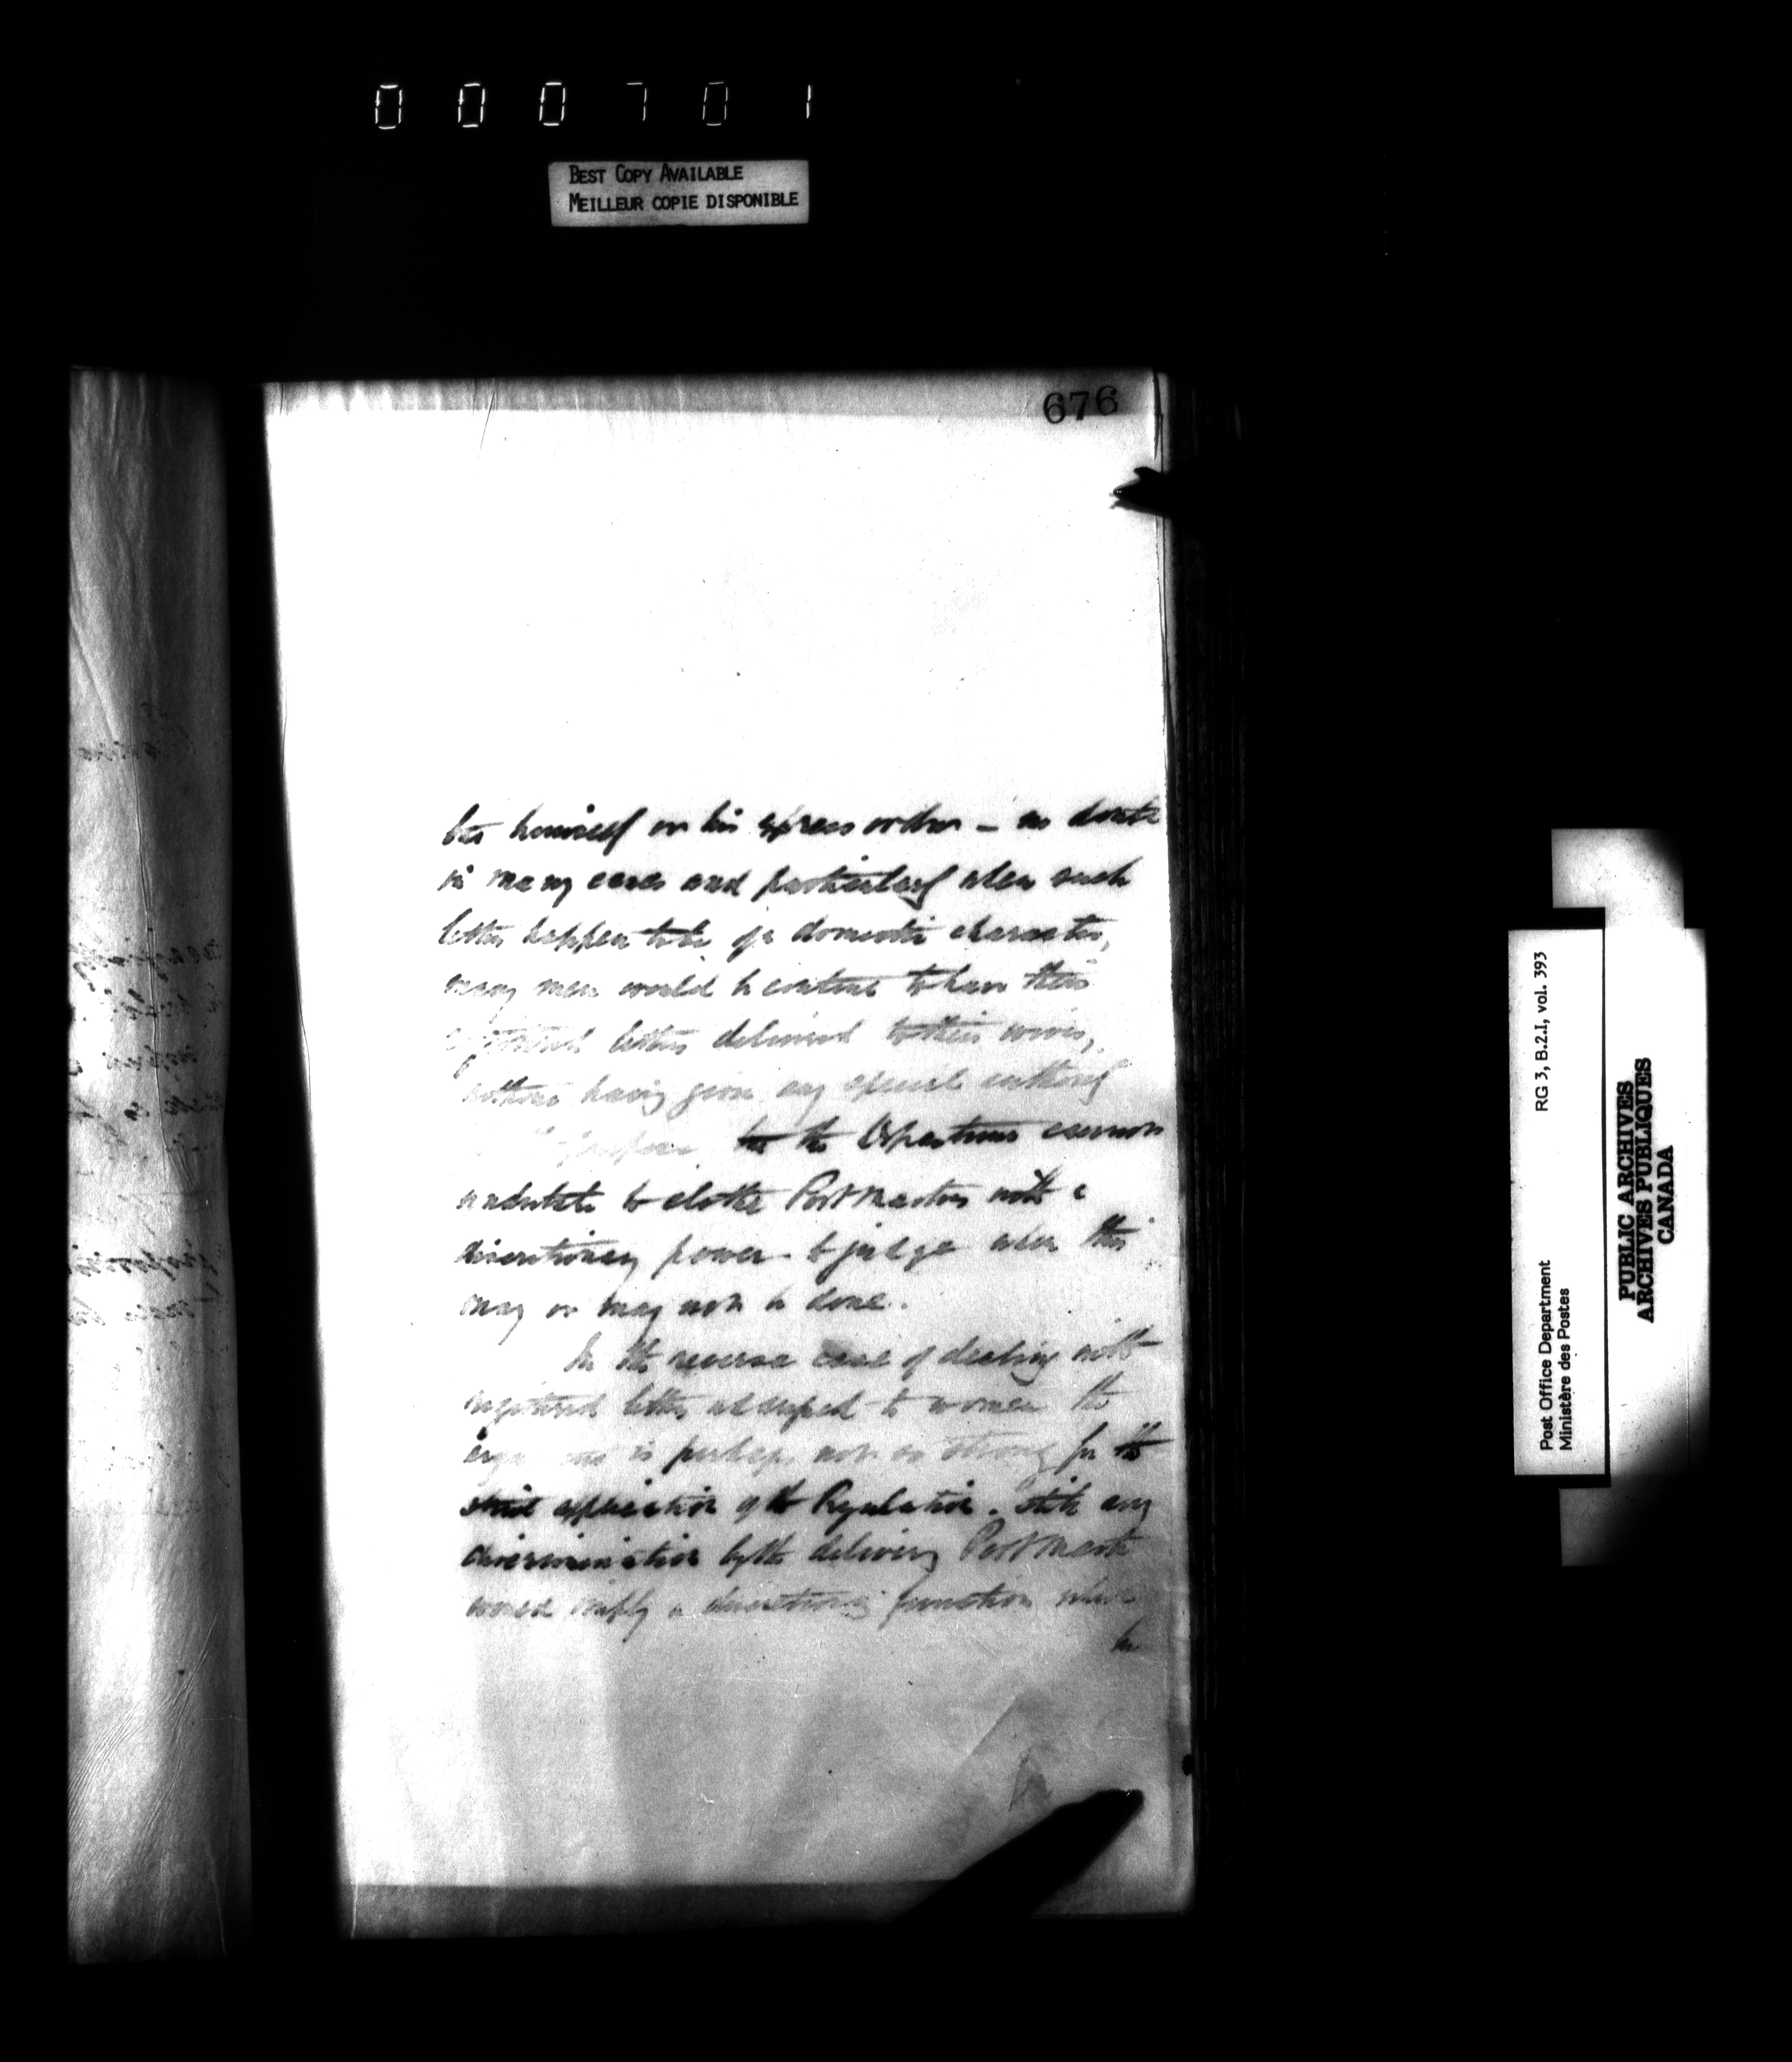 000701
BEST COPY AVAILABLE
MEILLEUR COPIE DISPONIBLE
676
himself or his express order – no doubt
in many cases and particularly when such
letters happen to be of a domestic character,
many men would be content to have their
registered letters delivered to their wives,
without having given any special authority
purpose but the Department cannot
undertake to clothe Postmasters with a
discretionary power to judge when this
may or may not be done.
In the reverse case of dealing with
registered letters addressed to women the
argument is perhaps not so strong for the
strict application of the Regulation. Still any
discrimination by the delivery Postmaster
would imply a discretionary function which
he
RG 3, B.2.I, vol. 393
Post Office Department
Ministère des Postes
PUBLIC ARCHIVES
ARCHIVES PUBLIQUES
CANADA